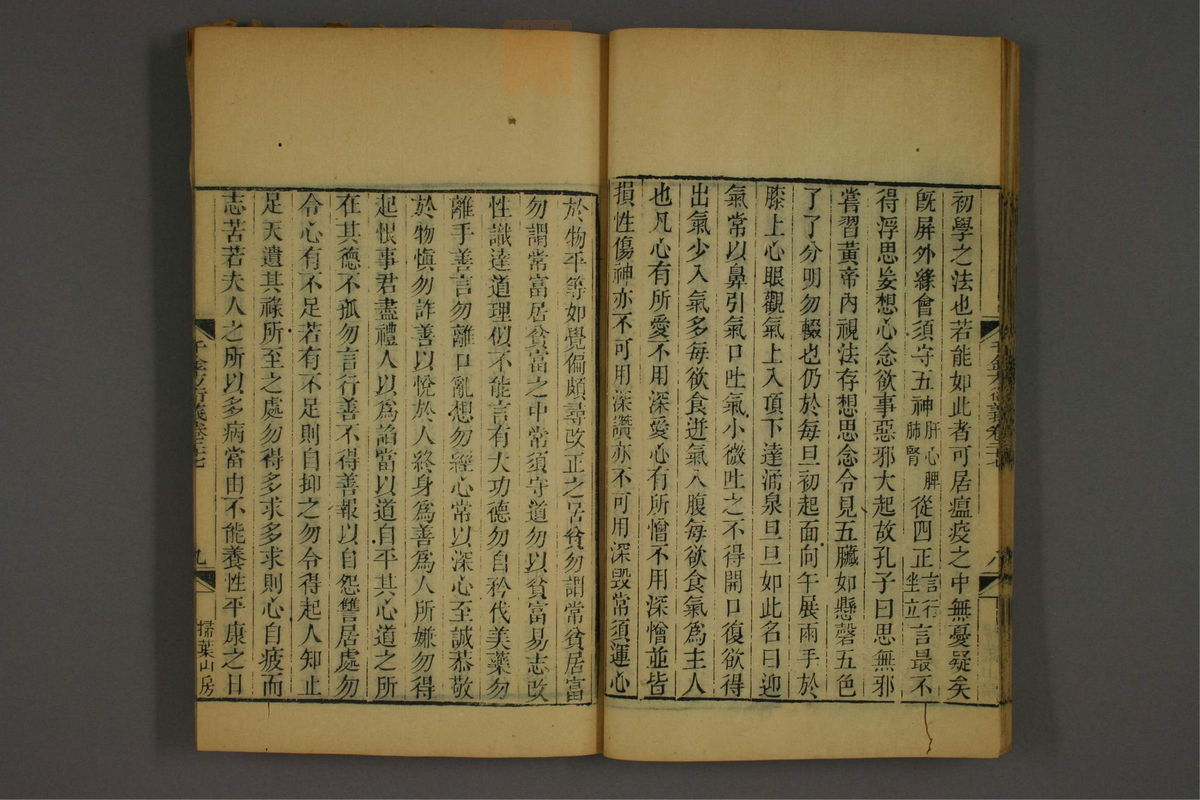 初學之法也若能如此者可居瘟疫之中無憂疑矣
旣屏外緣會須守五神肝心脾肺腎從四正言行坐立言最不
得浮思妄想心念欲事惡邪大起故孔子曰思無邪
嘗習黃帝內視法存想思念令見五臟如懸磬五色
了了分明勿輟也仍於每旦初起面向午展兩手於
膝上心眼觀氣上入頂下達湧泉旦旦如此名曰迎
氣常以鼻引氣口吐氣小微吐之不得開口復欲得
出氣少入氣多每欲食迸氣入腹每欲食氣爲主人
也凡心有所愛不用深愛心有所憎不用深憎並皆
損性傷神亦不可用深讚亦不可用深毀常須運心
千金方衍義卷二十七
八
於物平等如覺偏頗尋改正之居貧勿謂常貧居富
勿謂常富居貧富之中常須守道勿以貧富易志改
性識達道理似不能言有大功德勿自矜伐美藥勿
離手善言勿離口亂想勿經心常以深心至誠恭敬
於物慎勿詐善以悅於人終身爲善爲人所嫌勿得
起恨事君盡禮人以爲諂當以道自平其心道之所
在其德不孤勿言行善不得善報以自怨讐居處勿
令心有不足若有不足則自抑之勿令得起人知止
足天遺其祿所至之處勿得多求多求則心自疲而
志苦若夫人之所以多病當由不能養性平康之日
千金方衍義卷二十七
九
掃葉山房